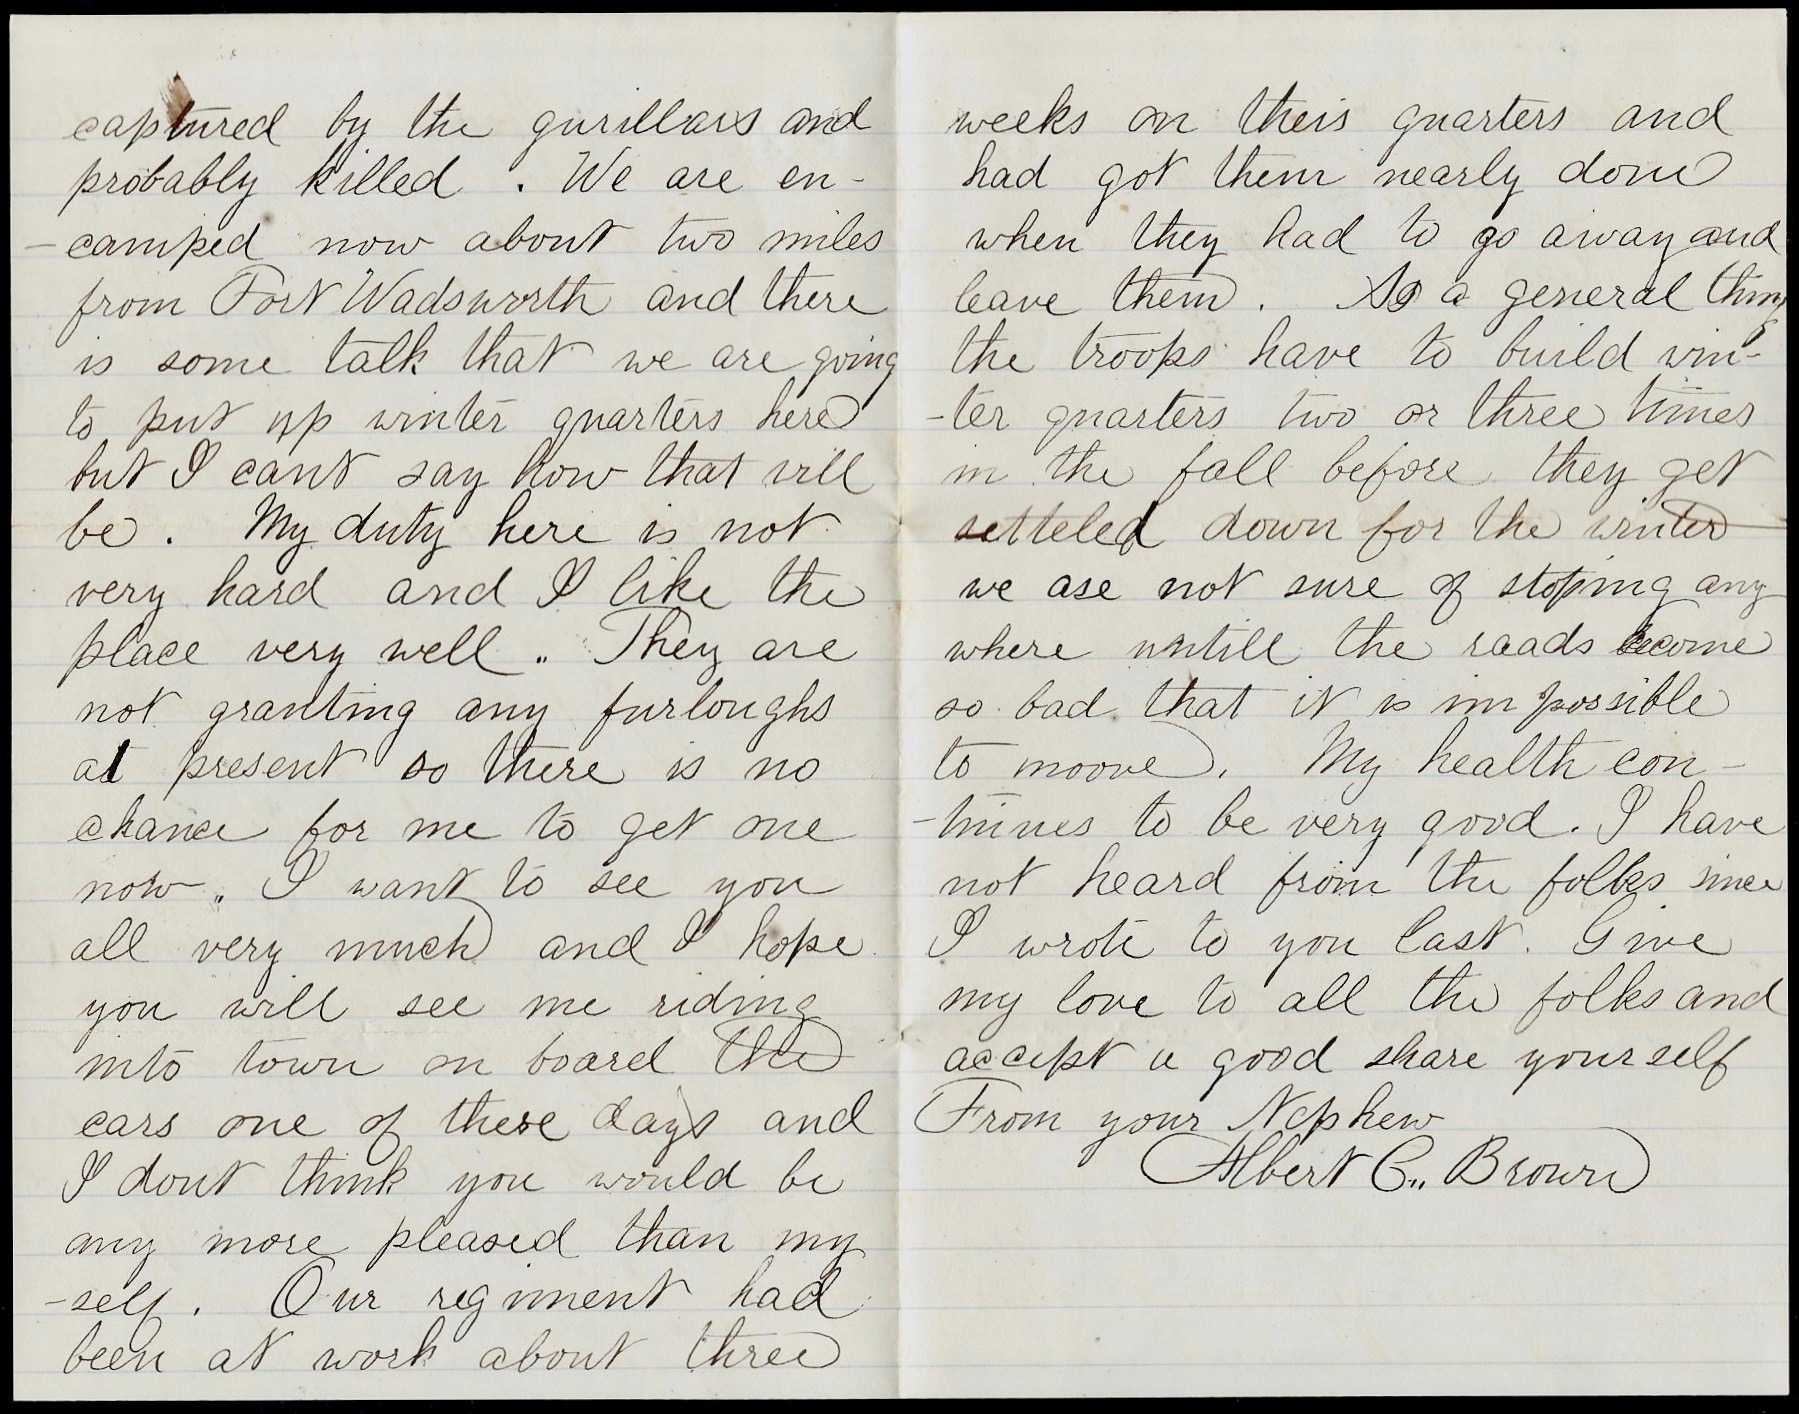 captured by the gurillars and
probably killed . We are en-
-camped now about two miles
from Fort Wadsworth and there
is some talk that we are going
to put up winter quarters here
but I cant say how that will
be . My duty here is not
very hard and I like the
place very well .. They are
not granting any furloughs
at present so there is no
chance for me to get one
now .. I want to see you
all very much and I hope
you will see me riding
into town on board the
cars one of these days and
I dont think you would be
any more pleased than my
-self . Our regiment had
been at work about three
weeks on theis quarters and
had got them nearly done
when they had to go away and
leave them . As a general thing
the troops have to build win-
-ter quarters two or three times
in the fall before they get
setteled down for the winter
we are not sure of stoping any
where untill the roads become
so bad that it is impossible
to moove . My health con-
-tinues to be very good . I have
not heard from the folks since
I wrote to you last . Give
my love to all the folks and
accept a good share yourself
From your Nephew
Albert C.. Brown